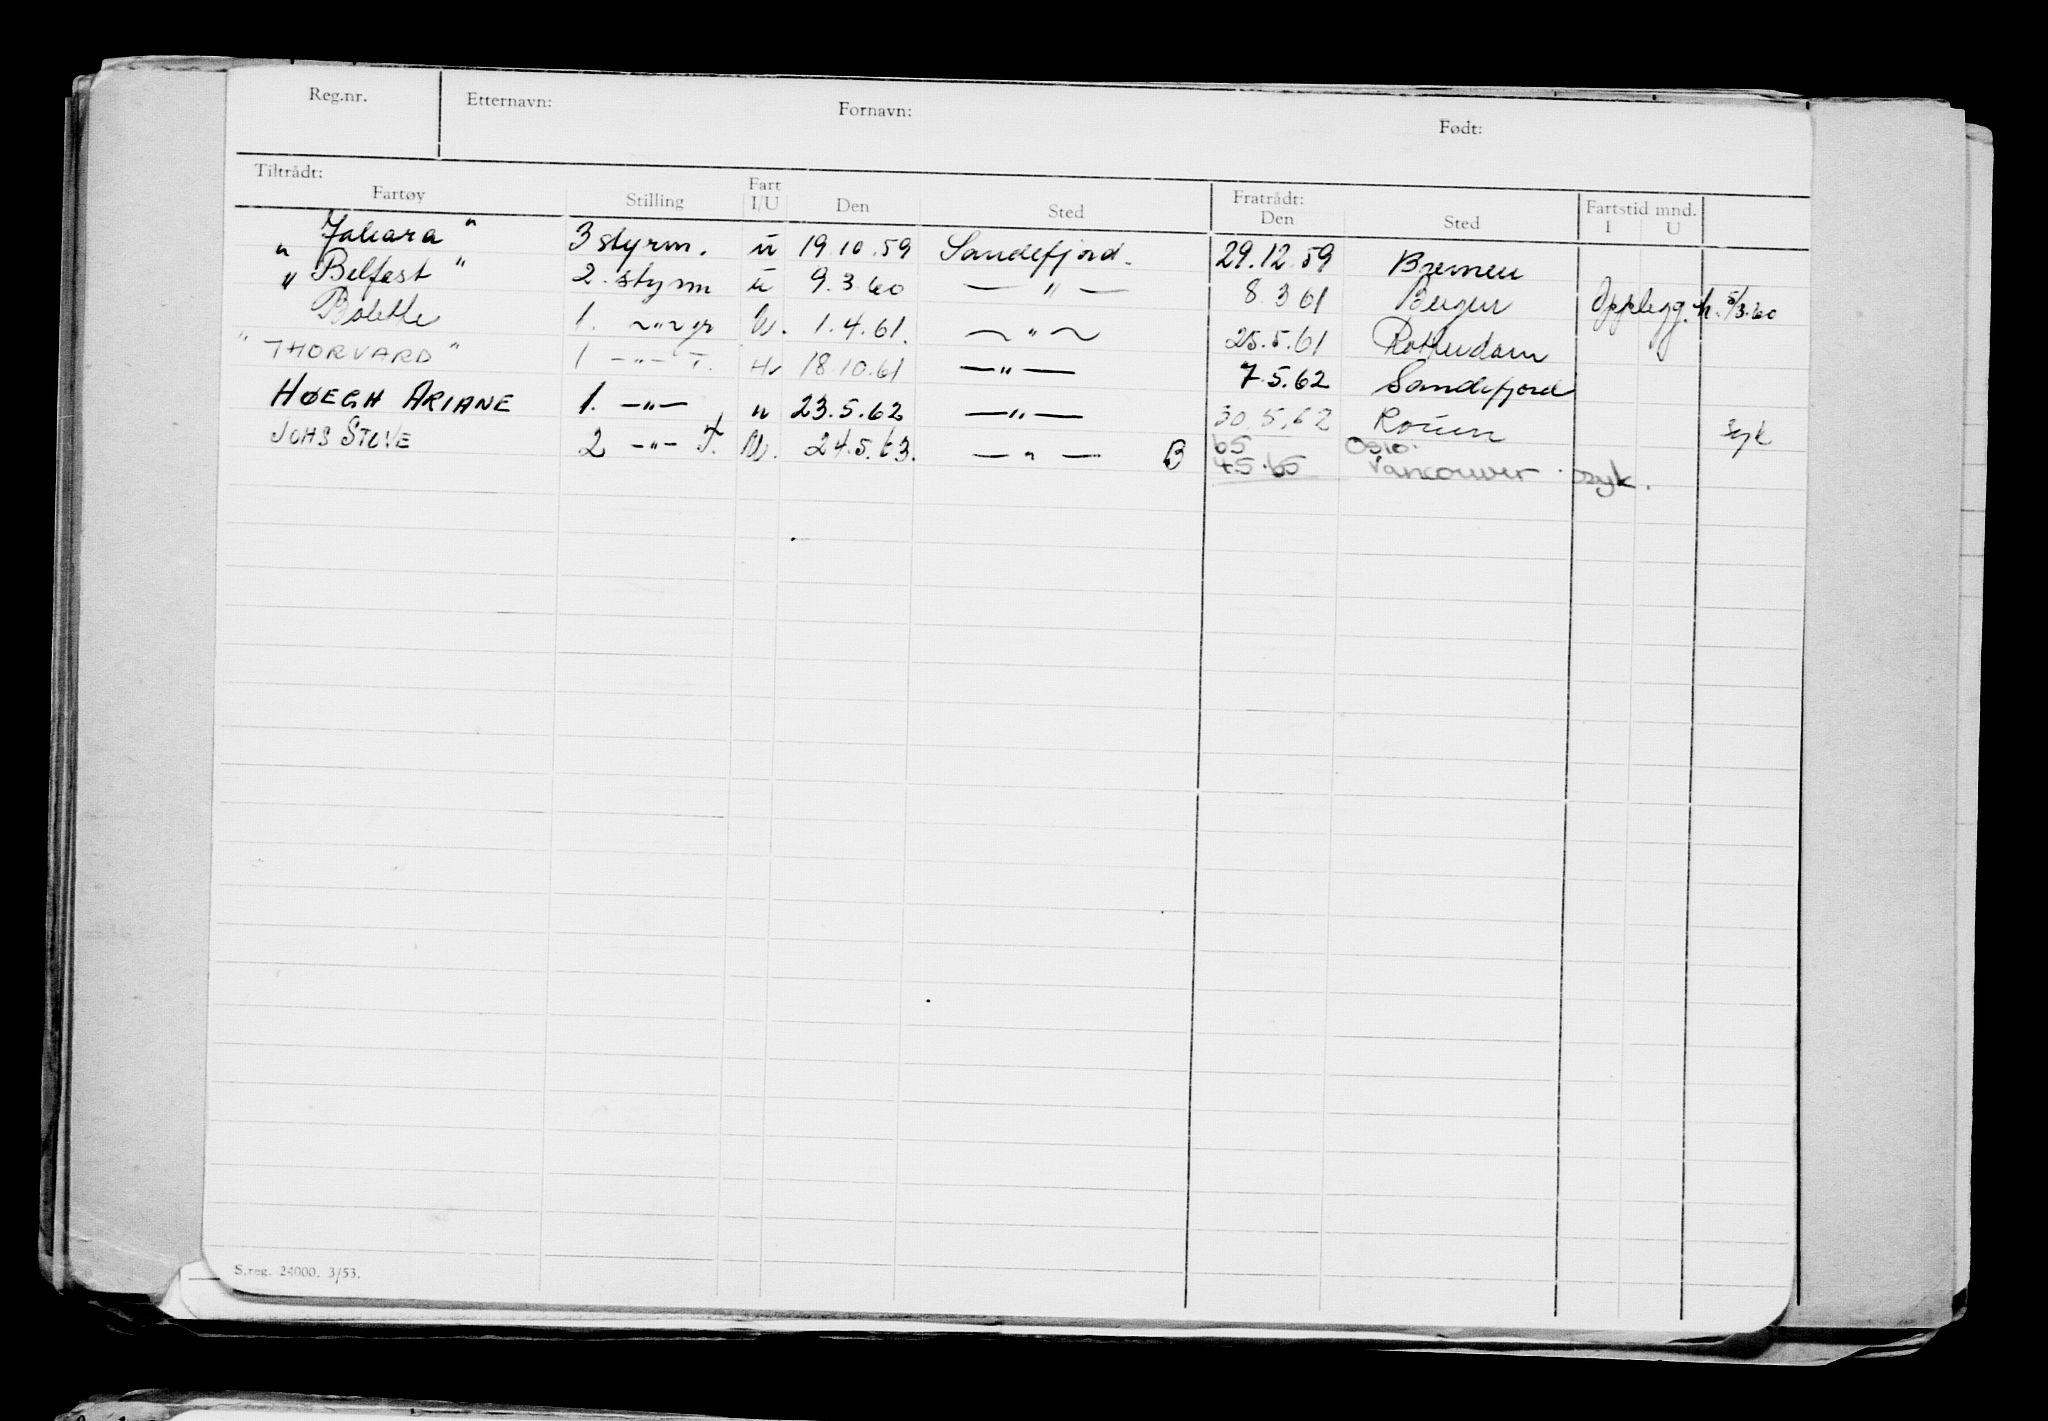 Reg.nr. Etternavn: Fornavn: Født:
Tiltrådt: Fratrådt:
Fartøy Stilling Fart I/U Den Sted Den Sted Fartstid mnd. I U
" Jalara " 3 styrm. u 19.10.59 Sandefjord. 29.12.59 Bremen
" Belfast " 2. styrm u 9.3.60 — " — 8.3 61 Bergen Opplegg. 5/3.60
Bolette 1. ~"~ U. 1.4.61. ~ " ~ 25.5.61 Rotterdam
" THORVARD " 1 —"— T. U 18.10.61 —"— 7.5.62 Sandefjord
HØEGH ARIANE 1. —"— u 23.5.62 —"— 30.5.62 Rouen syk
JOHS STOVE 2 —"— T. U. 24.5.63. — " — B 65 Oslo.
4.5.65 Vancouver. syk.
S.reg. 24000. 3/53.